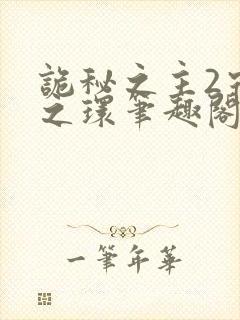 詭秘之主2宿
之環筆趣閣
一筆年華